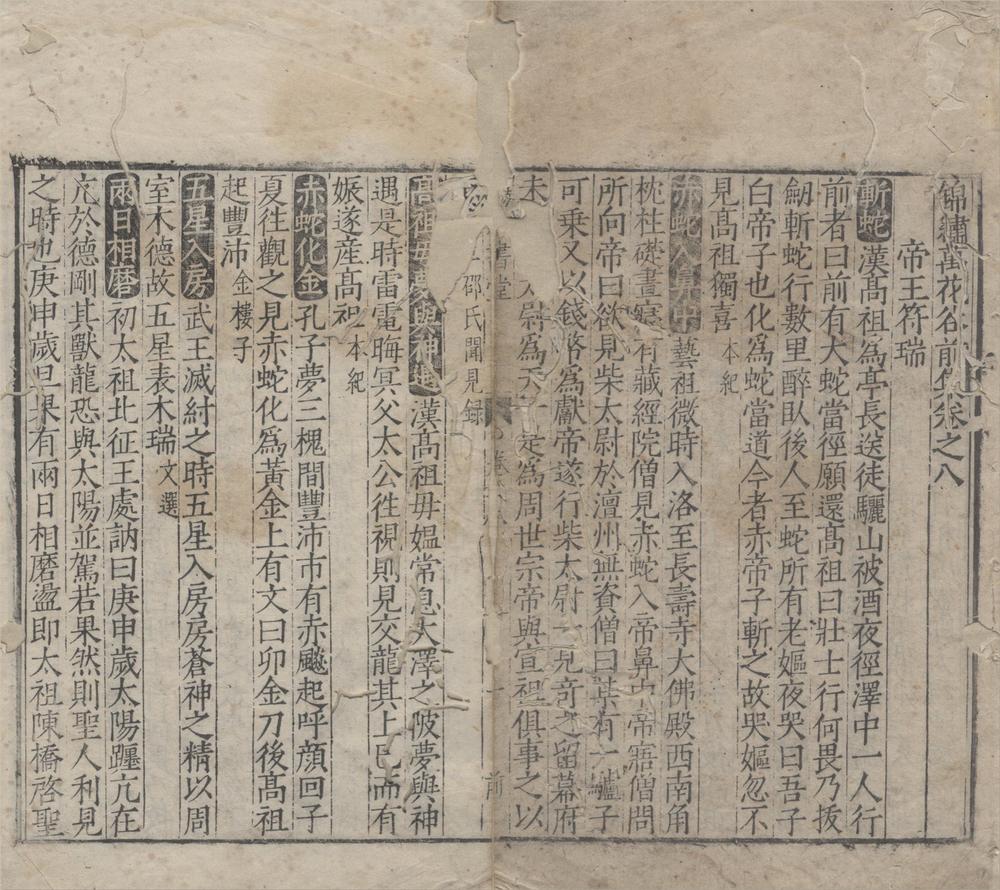 錦繡萬花谷前集卷之八
帝王符瑞
斬蛇漢髙祖為亭長送徒驪山被酒夜徑澤中一人行
前者曰前有大蛇當徑願還髙祖曰壯士行何畏乃拔
劒斬蛇行數里醉臥後人至蛇所有老嫗夜哭曰吾子
白帝子也化為蛇當道今者赤帝子斬之故哭嫗忽不
見髙祖獨喜本紀
赤蛇入鼻中藝祖微時入洛至長壽寺大佛殿西南角
枕柱礎晝寢有藏經院僧見赤蛇入帝鼻中帝寤僧問
所向曰欲見柴太尉於澶州無資僧曰某有一驢子
可乘又以錢幣為獻帝遂行柴太尉一見奇之留幕府
未 尉為天 定為周世宗帝與宣祖俱事之以
邵氏聞見録
髙祖母夢與神遇漢髙祖母媼常息大澤之陂夢與神
遇是時雷電晦冥父太公徃視則見交龍其上已而有
娠遂産髙祖本紀
赤蛇化金孔子夢三槐間豐沛市有赤飈起呼顔回子
夏徃觀之見赤蛇化為黃金上有文曰卯金刀後髙祖
起豐沛金樓子
五星入房武王滅紂之時五星入房房蒼神之精以周
室木德故五星表木瑞文選
兩日相磨初太祖北征王處訥曰庚申歲太陽躔亢在
亢於德剛其獸龍恐與太陽並駕若果然則聖人利見
之時也庚申歲旦果有兩日相磨盪即太祖陳橋啓聖